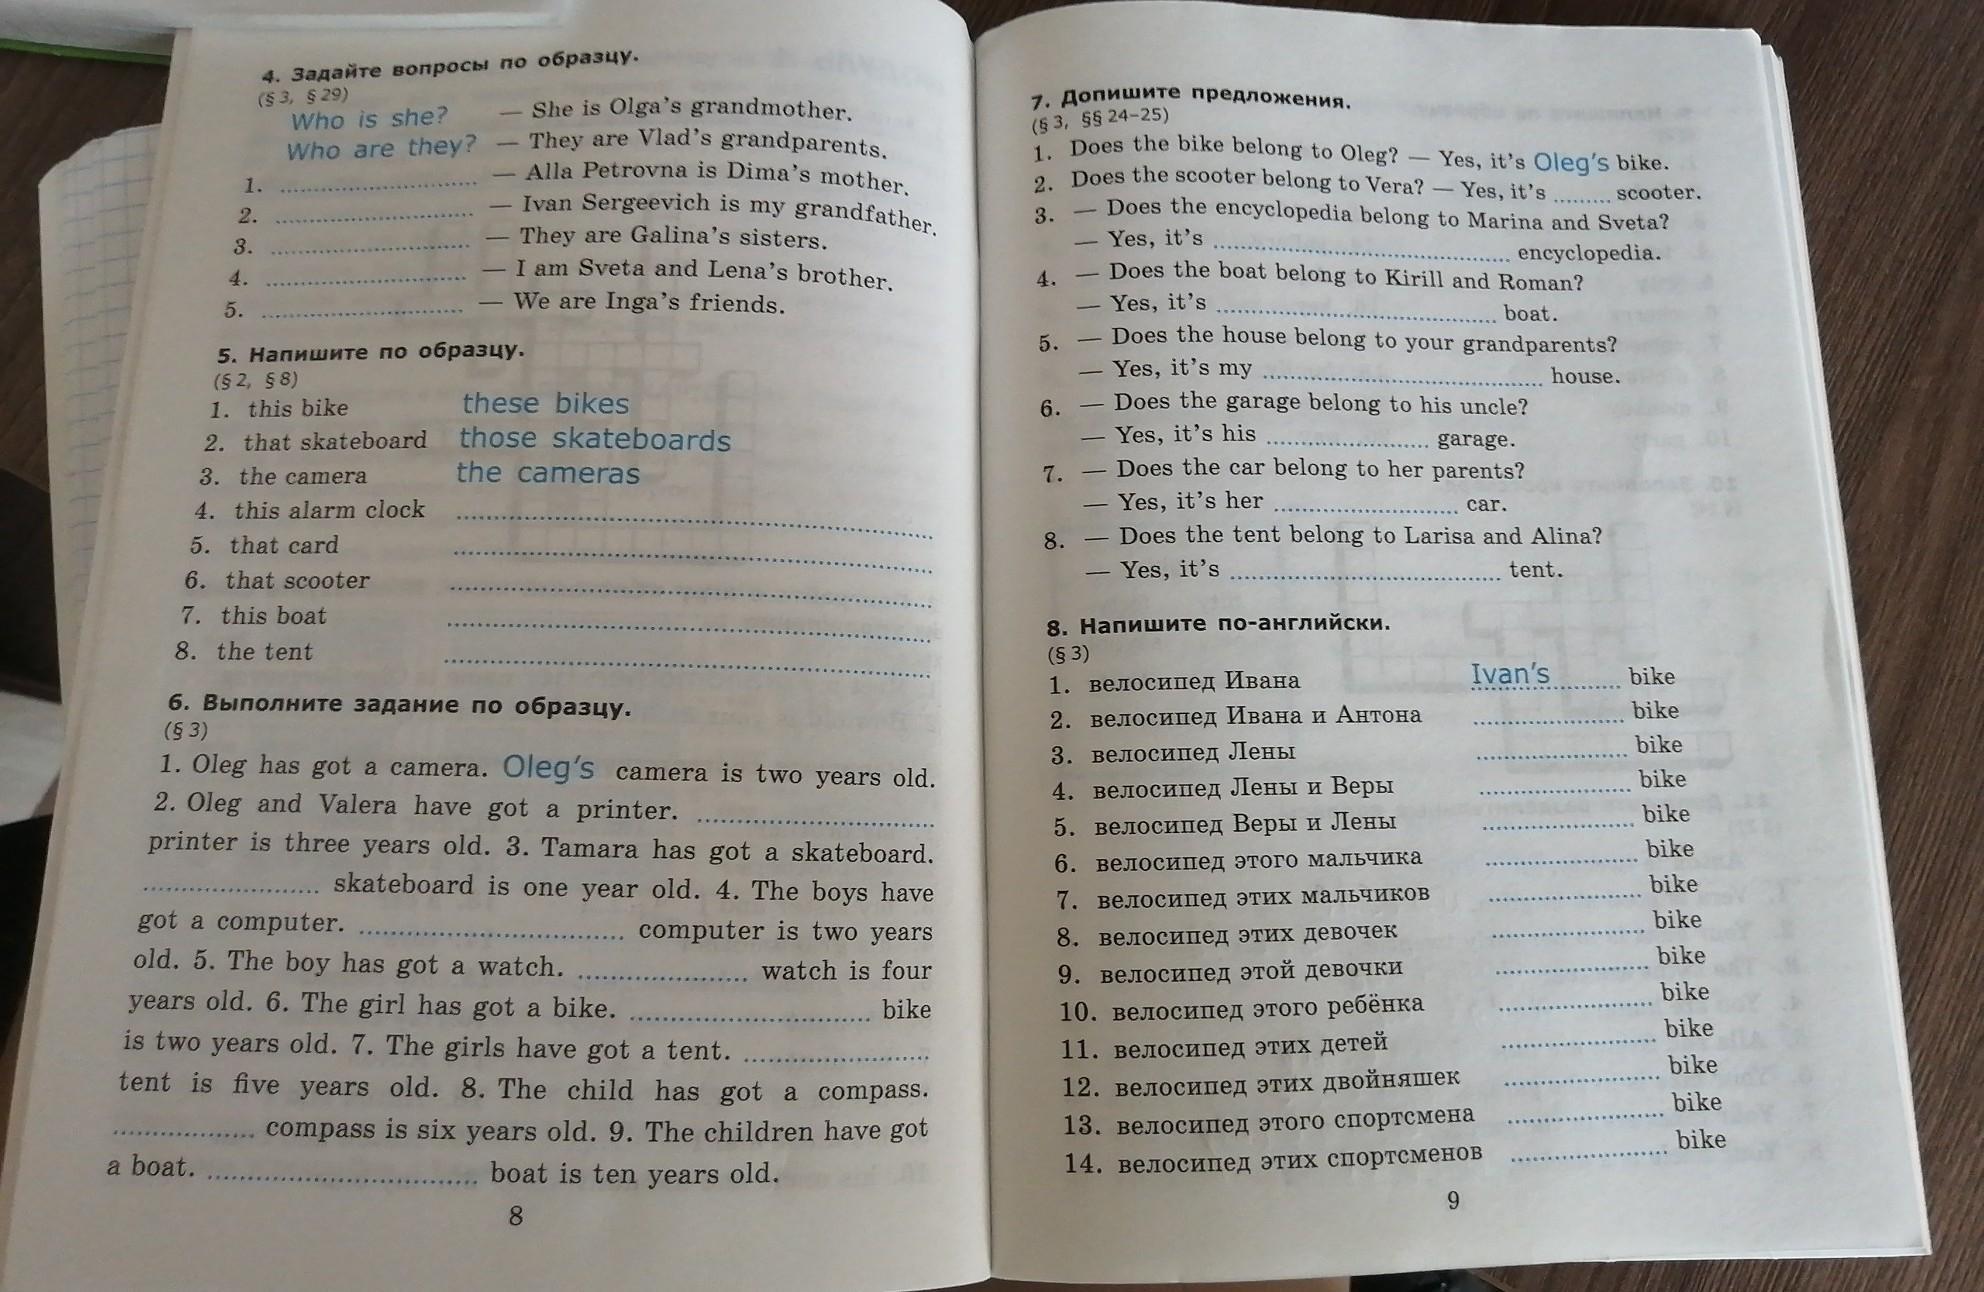 4. Задайте вопросы по образцу.
(§ 3, § 29)
Who is she? — She is Olga's grandmother.
Who are they? — They are Vlad's grandparents.
1. .......... — Alla Petrovna is Dima's mother.
2. .......... — Ivan Sergeevich is my grandfather.
3. .......... — They are Galina's sisters.
4. .......... — I am Sveta and Lena's brother.
5. .......... — We are Inga's friends.
5. Напишите по образцу.
(§ 2, § 8)
1. this bike these bikes
2. that skateboard those skateboards
3. the camera the cameras
4. this alarm clock ..........
5. that card ..........
6. that scooter ..........
7. this boat ..........
8. the tent ..........
6. Выполните задание по образцу.
(§ 3)
1. Oleg has got a camera. Oleg's camera is two years old.
2. Oleg and Valera have got a printer. ..........
printer is three years old. 3. Tamara has got a skateboard.
.......... skateboard is one year old. 4. The boys have
got a computer. .......... computer is two years
old. 5. The boy has got a watch. .......... watch is four
years old. 6. The girl has got a bike. .......... bike
is two years old. 7. The girls have got a tent. ..........
tent is five years old. 8. The child has got a compass.
.......... compass is six years old. 9. The children have got
a boat. .......... boat is ten years old.
8
7. Допишите предложения.
(§ 3, §§ 24–25)
1. Does the bike belong to Oleg? — Yes, it's Oleg's bike.
2. Does the scooter belong to Vera? — Yes, it's .......... scooter.
3. — Does the encyclopedia belong to Marina and Sveta?
— Yes, it's .......... encyclopedia.
4. — Does the boat belong to Kirill and Roman?
— Yes, it's .......... boat.
5. — Does the house belong to your grandparents?
— Yes, it's my .......... house.
6. — Does the garage belong to his uncle?
— Yes, it's his .......... garage.
7. — Does the car belong to her parents?
— Yes, it's her .......... car.
8. — Does the tent belong to Larisa and Alina?
— Yes, it's .......... tent.
8. Напишите по-английски.
(§ 3)
1. велосипед Ивана Ivan's .......... bike
2. велосипед Ивана и Антона .......... bike
3. велосипед Лены .......... bike
4. велосипед Лены и Веры .......... bike
5. велосипед Веры и Лены .......... bike
6. велосипед этого мальчика .......... bike
7. велосипед этих мальчиков .......... bike
8. велосипед этих девочек .......... bike
9. велосипед этой девочки .......... bike
10. велосипед этого ребёнка .......... bike
11. велосипед этих детей .......... bike
12. велосипед этих двойняшек .......... bike
13. велосипед этого спортсмена .......... bike
14. велосипед этих спортсменов .......... bike
9